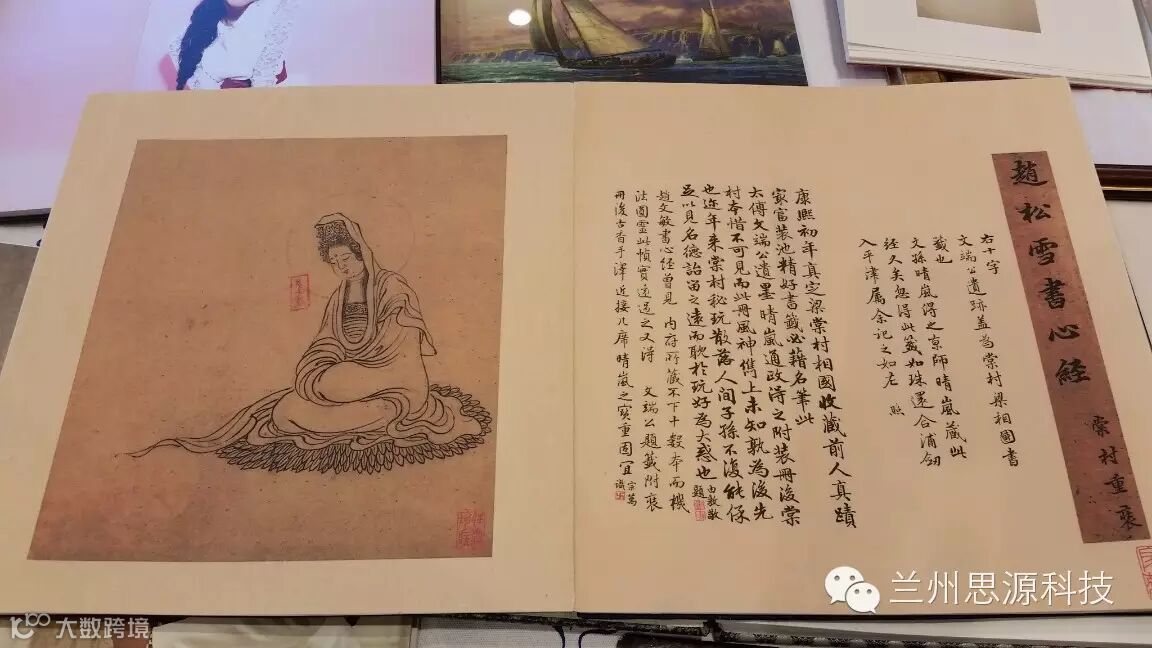 趙松雪書心經
棠村重裘
右十字
文端公遺跡蓋為棠村梁相國書
籤也
文孫晴嵐得之京師晴嵐藏此
經久矣忽得此籤如珠還合浦劍
入平津属余記之如左 熙
康熙初年真定梁棠村相國收藏前人真蹟
家官装池精好書籤必藉名筆此
太傅文端公遺墨晴嵐通政得之附装冊後棠
村本惜不可見而此冊風神儁上未知孰為後先
也近年来棠村秘玩散落人间子孫不復能保
足以見名德詒留之遠而耽於玩好為大惑也
由敦敬題
趙文敏書心經曾見 內府所藏不下十數本而機
法圓靈此幀實遠過之又得 文端公題籤附裘
冊後古香手澤近接几席晴嵐之寶重固宜
宗萬
識
兰州思源科技
大数跨境